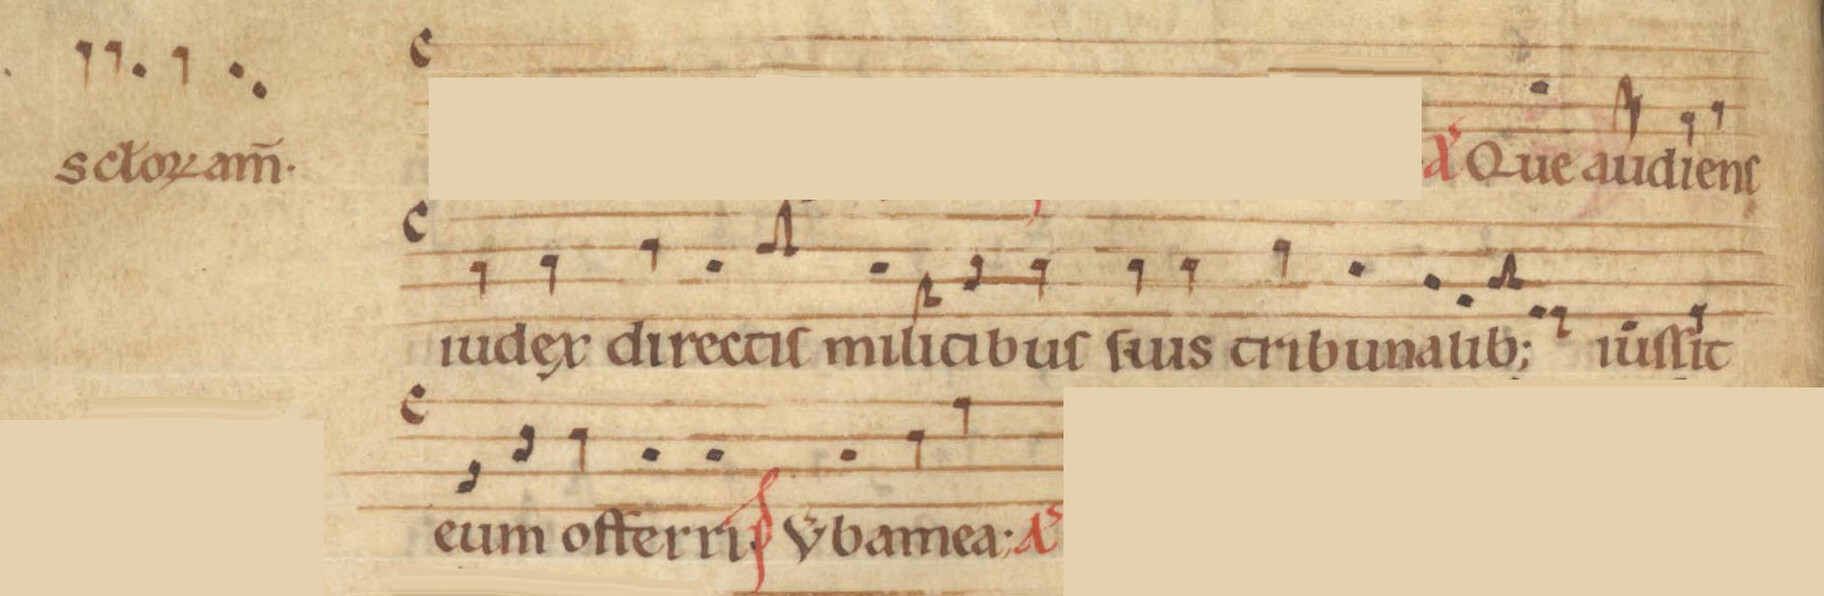 sctoꝝ am̄.
A̅ Que audienſ
iudęx directiſ militibuſ ſuis tribunalib; iuſſit
eum offerri. p̅ V̅ba mea; A̅